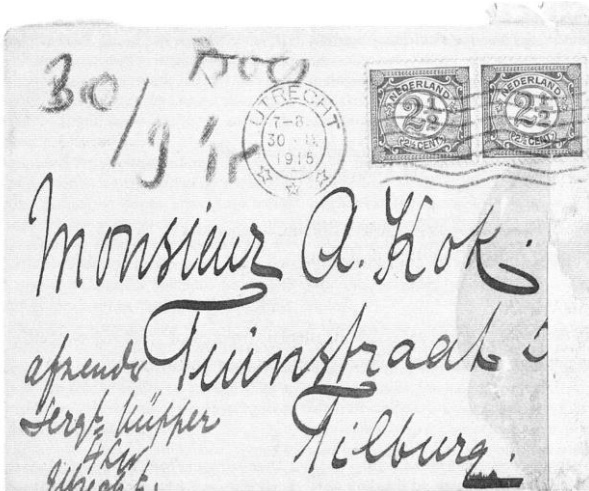 30/9 15
UTRECHT
7-8
30 · IX
1915
NEDERLAND
2½
(2½ CENT)
NEDERLAND
2½
(2½ CENT)
Monsieur A. Kok.
Tuinstraat 5
Tilburg.
afzender
Sergt Küpper
Utrecht.